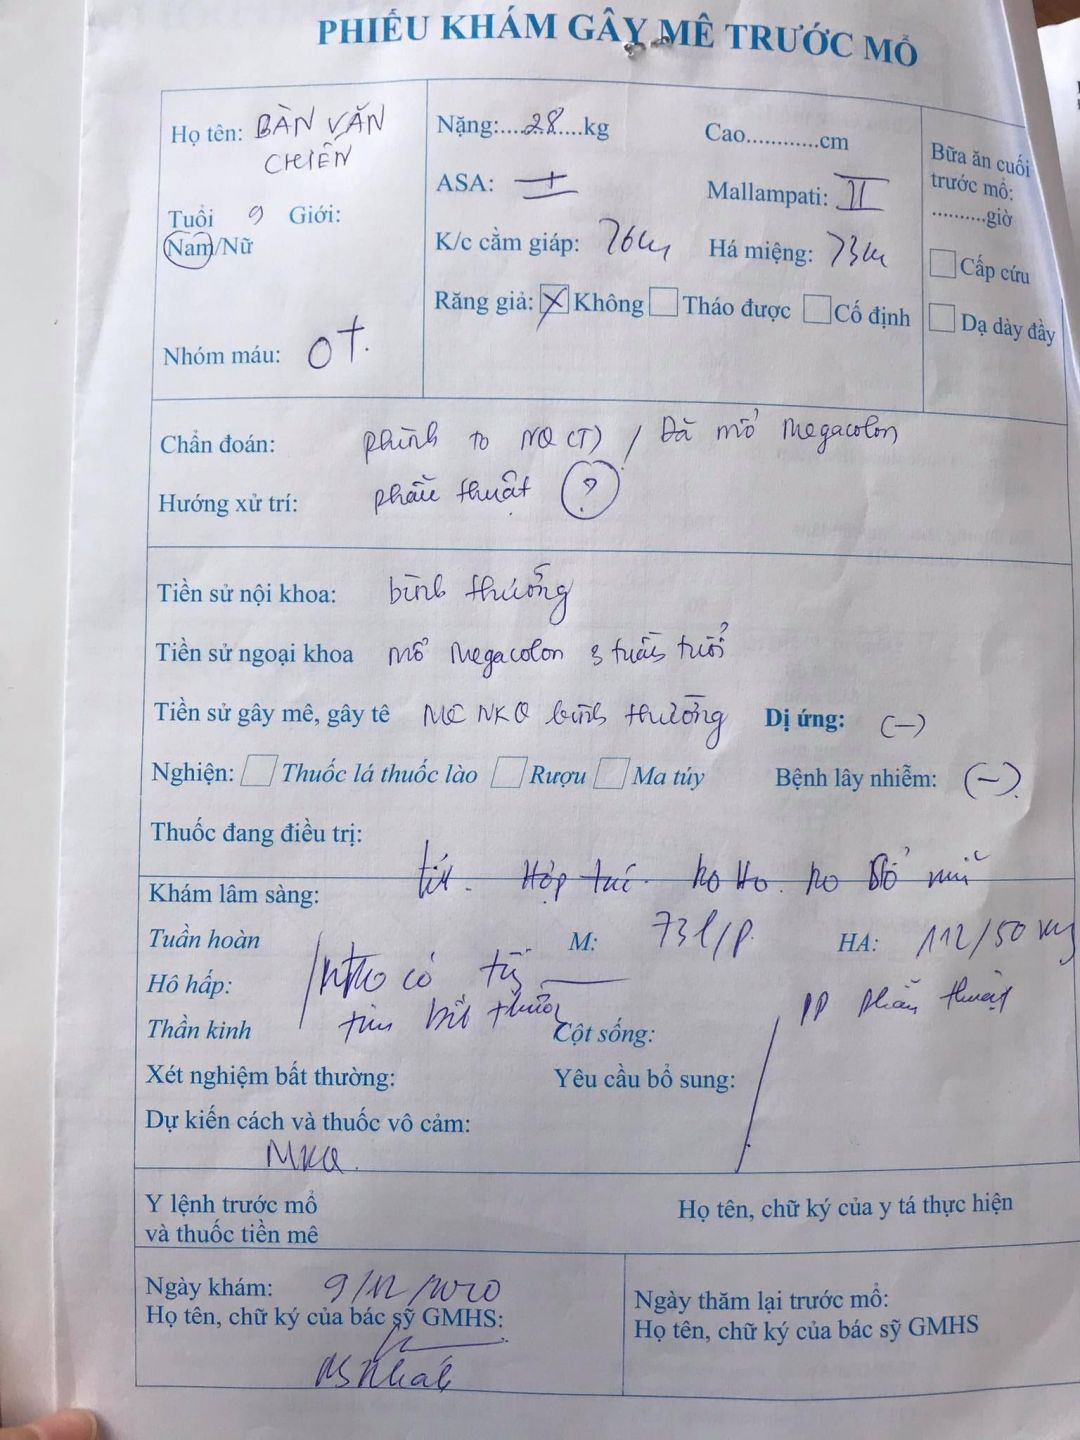 PHIẾU KHÁM GÂY MÊ TRƯỚC MỔ
Họ tên: BÀN VĂN
CHIẾN
Tuổi 9 Giới:
Nam/Nữ
Nhóm máu: O+.
Nặng:....28....kg Cao............cm
ASA: I Mallampati: II
K/c cằm giáp: Há miệng:
Răng giả: X Không Tháo được Cố định
Bữa ăn cuối
trước mổ:
..........giờ
Cấp cứu
Dạ dày đầy
Chẩn đoán: phình to NQ (T) / Đã mổ Megacolon
Hướng xử trí: phẫu thuật ?
Tiền sử nội khoa: bình thường
Tiền sử ngoại khoa mổ Megacolon 3 tuần tuổi
Tiền sử gây mê, gây tê MC NKQ bình thường Dị ứng: (-)
Nghiện: Thuốc lá thuốc lào Rượu Ma túy Bệnh lây nhiễm: (-).
Thuốc đang điều trị:
Khám lâm sàng: Hợp tác. ko Ho. ko Sổ mũi
Tuần hoàn M: 73l/p. HA: 112/50
Hô hấp: có
Thần kinh bất thường Cột sống: pp phẫu thuật
Xét nghiệm bất thường: Yêu cầu bổ sung:
Dự kiến cách và thuốc vô cảm:
NKQ.
Y lệnh trước mổ
và thuốc tiền mê
Họ tên, chữ ký của y tá thực hiện
Ngày khám: 9/12/2020
Họ tên, chữ ký của bác sỹ GMHS:
Ngày thăm lại trước mổ:
Họ tên, chữ ký của bác sỹ GMHS